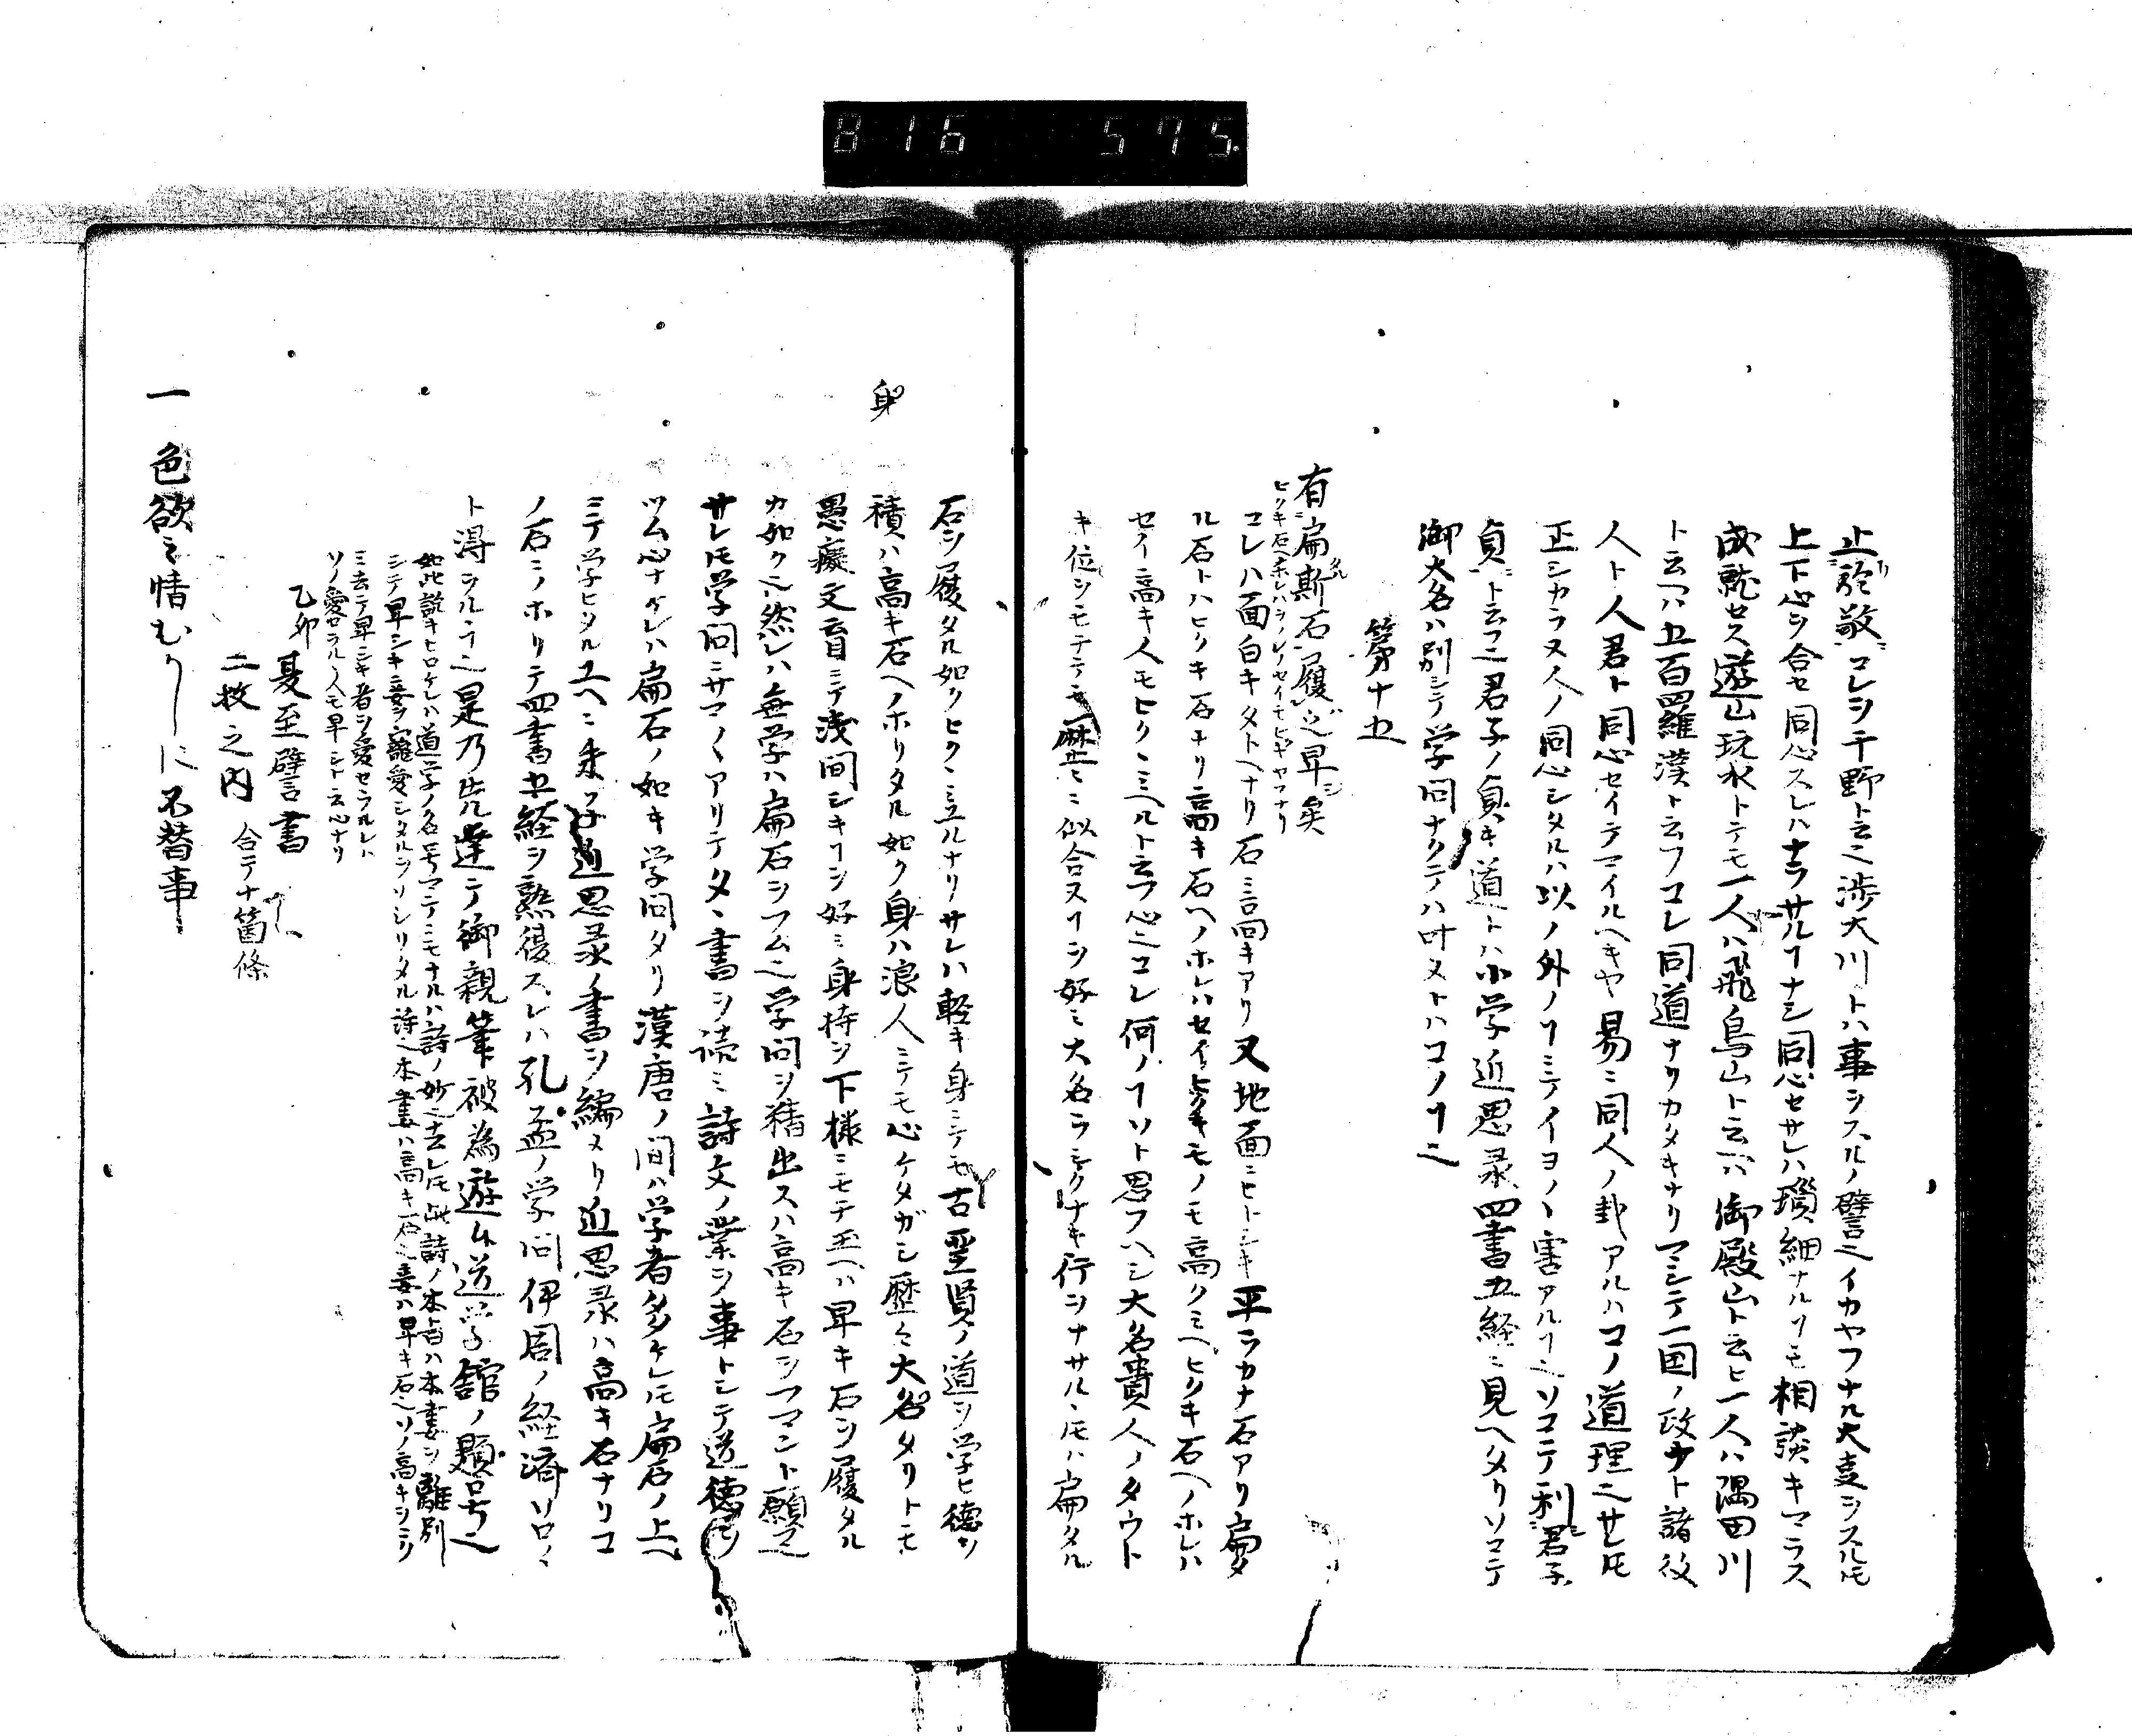 816 575.
止於敬コレヲ于野ト云ニ渉大川トハ事ヲスルノ譬ヘイカヤフナル大事ヲスルトモ
上下心ヲ合セ同心スレハナラサルコトナシ同心セサレハ瑣細ナルコトモ相談キマラス
成就セス遊山玩水トテモ一人ハ飛鳥山ト云ハ御殿山ト云ヒ一人ハ隅田川
ト云ヘハ五百羅漢ト云フコレ同道ナリカタキナリマシテ一国ノ政ナト諸役
人ト人君ト同心セイテマイルヘキヤ易ニ同人ノ卦アルハコノ道理ニサレトモ
正シカラヌ人ノ同心シタルハ以ノ外ノコトニテイヨ〱害アルコトソコテ利君子
貞ト云フ君子ノ貞キ道トハ小学近思录四書五経ニ見ヘタリソコテ
御大名ハ別シテ学問ナクテハ叶ヌトハコノコト也
第十五
有扁斯石履之卑矣
ヒクキ石ヘ乗レハヲノレノセイモヒキヤフナリ
コレハ面白キタトヘナリ石ニ高キアリ又地面ニヒトシキ平ラカナ石アリ扁タ
ル石トハヒクキ石ナリ高キ石ヘノホレハセイヒクキモノモ高クミヘヒクキ石ヘノホレハ
セイ高キ人モヒクヽミヘルト云フ心ニコレ何ノコトソト思フヘシ大名貴人ノタウト
キ位ヲモチテモ歴々ニ似合ヌコトヲ好ミ大名ラシクナキ行ヲナサルヽトモハ扁タル
石ヲ履タル如クヒクヽミユルナリサレハ軽キ身ニテモ古聖賢ノ道ヲ学ヒ徳ヲ
積ハ高キ石ヘノホリタル如ク身ハ浪人ニテモ心ケタガシ歴々大名タリトモ
身
愚癡文盲ニテ浅間シキコトヲ好ミ身持ヲ下様ニモテ玉ヘハ卑キ石ヲ履タル
カ如クニ然レハ無学ハ扁石ヲフム也学問ヲ精出スハ高キ石ヲフマント願フ也
サレトモ学問ニサマ〱アリテタヽ書ヲ読ミ詩文ノ業ヲ事トシテ道徳ヲ
ツム心ナケレハ扁石ノ如キ学問タリ漢唐ノ間ハ学者多ケレトモ扁石ノ上ヘ
ニテ学ヒタルユヘニ朱子近思录ノ書ヲ編メリ近思录ハ高キ石ナリコ
ノ石ニノホリテ四書五経ヲ熟復スレハ孔孟ノ学問伊周ノ経済ソロ〱
ト得ラルヽ也是乃先達テ御親筆被為遊候道学館ノ題号也
如此説キヒロケレハ道学ノ名号マテニモナルハ詩ノ妙也去レトモ此詩ノ本旨ハ本妻ヲ離別
シテ卑シキ妾ヲ寵愛シタルヲソシリタル詩也本妻ハ高キ石也妾ハ卑キ石也ソノ高キヲミリ
ミ去テ卑シキ者ヲ愛セラルレハ
ソノ愛セラルヽ人モ卑シト云心ナリ
乙卯
夏至譬言書
二枚之内 合テ十箇條
一 色欲之情むりに不替事